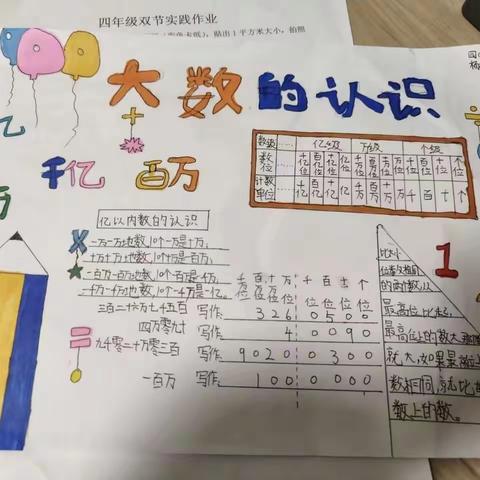 四年级双节实践作业
贴出1平方米大小,拍照
大数的认识
亿
千亿 百万
万
数级 …… 亿级 万级 个级
数位 …… 千亿位 百亿位 十亿位 亿位 千万位 百万位 十万位 万位 千位 百位 十位 个位
计数单位 …… 千亿 百亿 十亿 亿 千万 百万 十万 万 千 百 十 个
亿以内数的认识
一万一万地数,10个一万是十万;
十万十万地数,10个十万是百万;
一百万一百万地数,10个一百万是一千万;
一千万一千万地数,10个一千万是一亿。
千万位 百万位 十万位 万位 千位 百位 十位 个位
三百二十六万七千五百 写作: 3 2 6 0 5 0 0
四万零九十 写作: 4 0 0 9 0
九千零二十万零三百 写作: 9 0 2 0 0 3 0 0
一百万 写作: 1 0 0 0 0 0 0
1
比大小
位数相同
的两个数,从
最高位比起,
最高位上的数大
就大,如果最高位上
数相同,就比
数上的数。